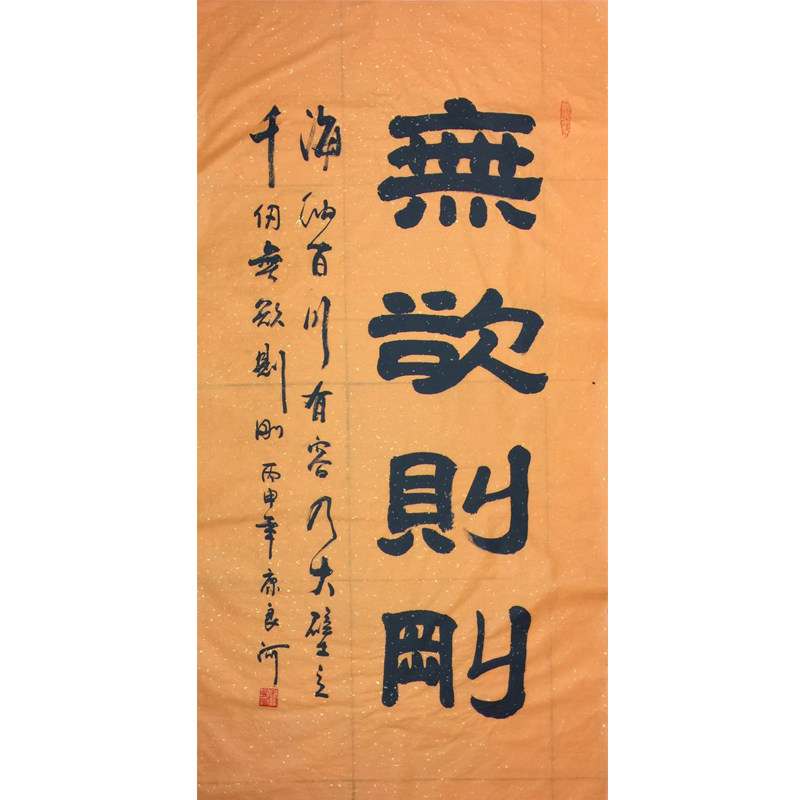 無欲則剛
海納百川有容乃大壁立
千仞無欲則剛丙申年康良河